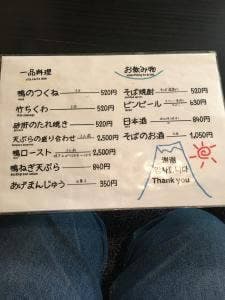 一品料理
鴨のつくね 520円
竹ちくわ 520円
砂肝のたれ焼き 520円
天ぷらの盛り合わせ 2,500円
鴨ロースト 2,500円
鴨ねぎ天ぷら 840円
あげまんじゅう 350円
お飲み物
そば焼酎 520円
ビンビール 630円
日本酒 840円
そばのお酒 1,050円
谢谢
감사합니다
Thank you